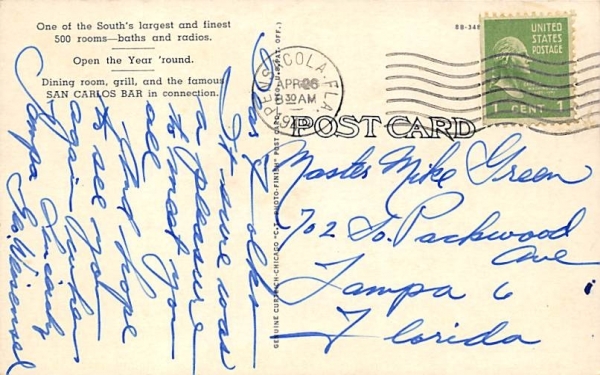 One of the South's largest and finest
500 rooms—baths and radios.
Open the Year 'round.
Dining room, grill, and the famous
SAN CARLOS BAR in connection.
Dear Folks
It sure was
a pleasure
to meet you
all
And hope
to see you
again when
Tampa
Sincerely
GENUINE CURTEICH-CHICAGO "C.T. PHOTO-FINISH" POST CARD (REG. U.S. PAT. OFF.)
PENSACOLA, FLA.
APR 26
8 30 AM
UNITED
STATES
POSTAGE
1 CENT 1
POST CARD
Master Mike Green
702 So. Packwood
Ave
Tampa 6
Florida